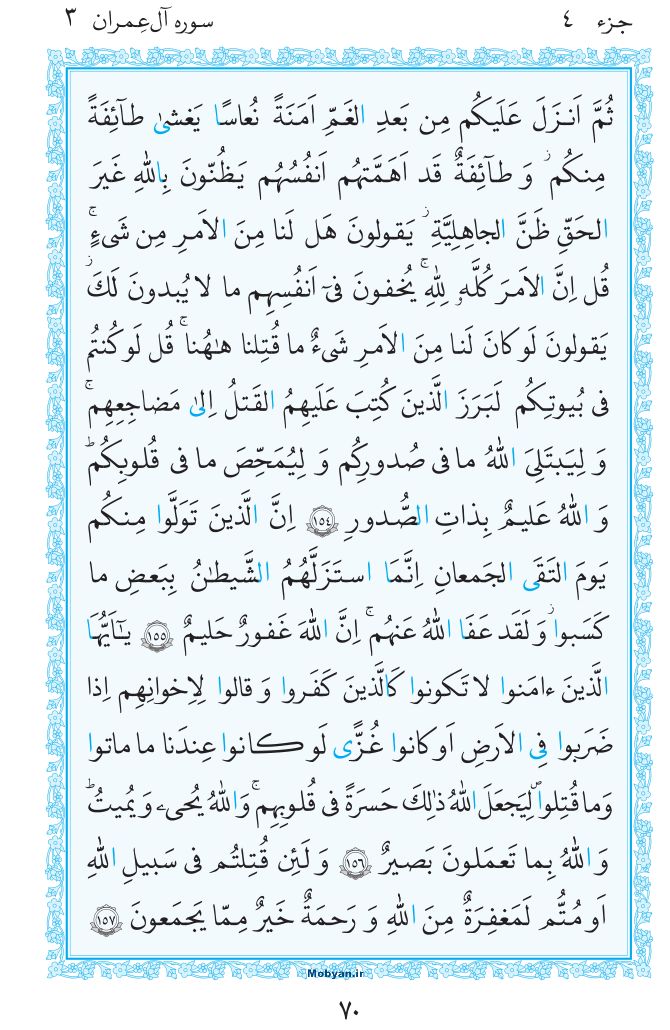 جزء ٤ سوره آل‌عِمران ٣
ثُمَّ اَنزَلَ عَلَيكُم مِن بَعدِ الغَمِّ اَمَنَةً نُعاسًا يَغشىٰ طـآئِفَةً
مِنكُم ۖ وَ طـآئِفَةٌ قَد اَهَمَّتهُم اَنفُسُهُم يَظُنّونَ بِاللهِ غَيرَ
الحَقِّ ظَنَّ الجاهِلِيَّةِ ۖ يَقولونَ هَل لَنا مِنَ الاَمرِ مِن شَیءٍ ۚ
قُل اِنَّ الاَمرَ كُلَّهو لِلّٰهِ ۚ يُخفونَ فی اَنفُسِهِم ما لا يُبدونَ لَكَ ۖ
يَقولونَ لَو كانَ لَنا مِنَ الاَمرِ شَیءٌ ما قُتِلنا هٰـهُنا ۚ قُل لَو كُنتُم
فی بُيوتِكُم لَبَرَزَ الَّذينَ كُتِبَ عَلَيهِمُ القَتلُ اِلىٰ مَضاجِعِهِم ۚ
وَ لِيَبتَلِیَ اللهُ ما فی صُدورِكُم وَ لِيُمَحِّصَ ما فی قُلوبِكُم ۗ
وَ اللهُ عَليمٌ بِذاتِ الصُّدورِ ﴿١٥٤﴾ اِنَّ الَّذينَ تَوَلَّوا مِنكُم
يَومَ التَقَى الجَمعانِ اِنَّمَا استَزَلَّهُمُ الشَّيطٰنُ بِبَعضِ ما
كَسَبوا ۖ وَ لَقَد عَفَا اللهُ عَنهُم ۚ اِنَّ اللهَ غَفورٌ حَليمٌ ﴿١٥٥﴾ يـٰٓاَيُّهَا
الَّذينَ ءامَنوا لا تَكونوا كَالَّذينَ كَفَروا وَ قالوا لِاِخوانِهِم اِذا
ضَرَبوا فِی الاَرضِ اَو كانوا غُزًّى لَو كـانوا عِندَنا ما ماتوا
وَ ما قُتِلوا لِيَجعَلَ اللهُ ذٰلِكَ حَسرَةً فی قُلوبِهِم ۗ وَ اللهُ يُحیۦ وَ يُميتُ ۗ
وَ اللهُ بِما تَعمَلونَ بَصيرٌ ﴿١٥٦﴾ وَ لَئِن قُتِلتُم فی سَبيلِ اللهِ
اَو مُتُّم لَمَغفِرَةٌ مِنَ اللهِ وَ رَحمَةٌ خَيرٌ مِمّا يَجمَعونَ ﴿١٥٧﴾
Mobyan.ir
٧٠